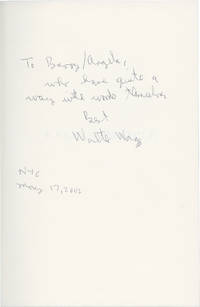 To Barry/Angela,
who have quite a
way with words themselves.
Best
Walter
NYC
May 17, 2002